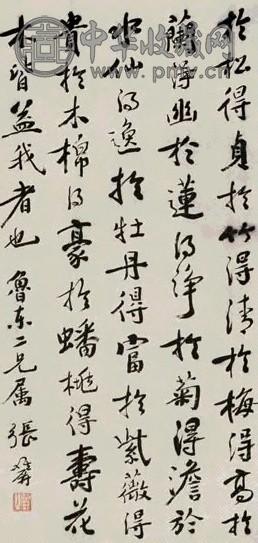 中华收藏网
www.sc798.com
於松得貞於竹得清於梅得高於
蘭得幽於蓮得净於菊得澹於
水仙得逸於牡丹得富於紫薇得
貴於木棉得豪於蟠桃得壽花
木皆益我者也 魯東二兄属 張